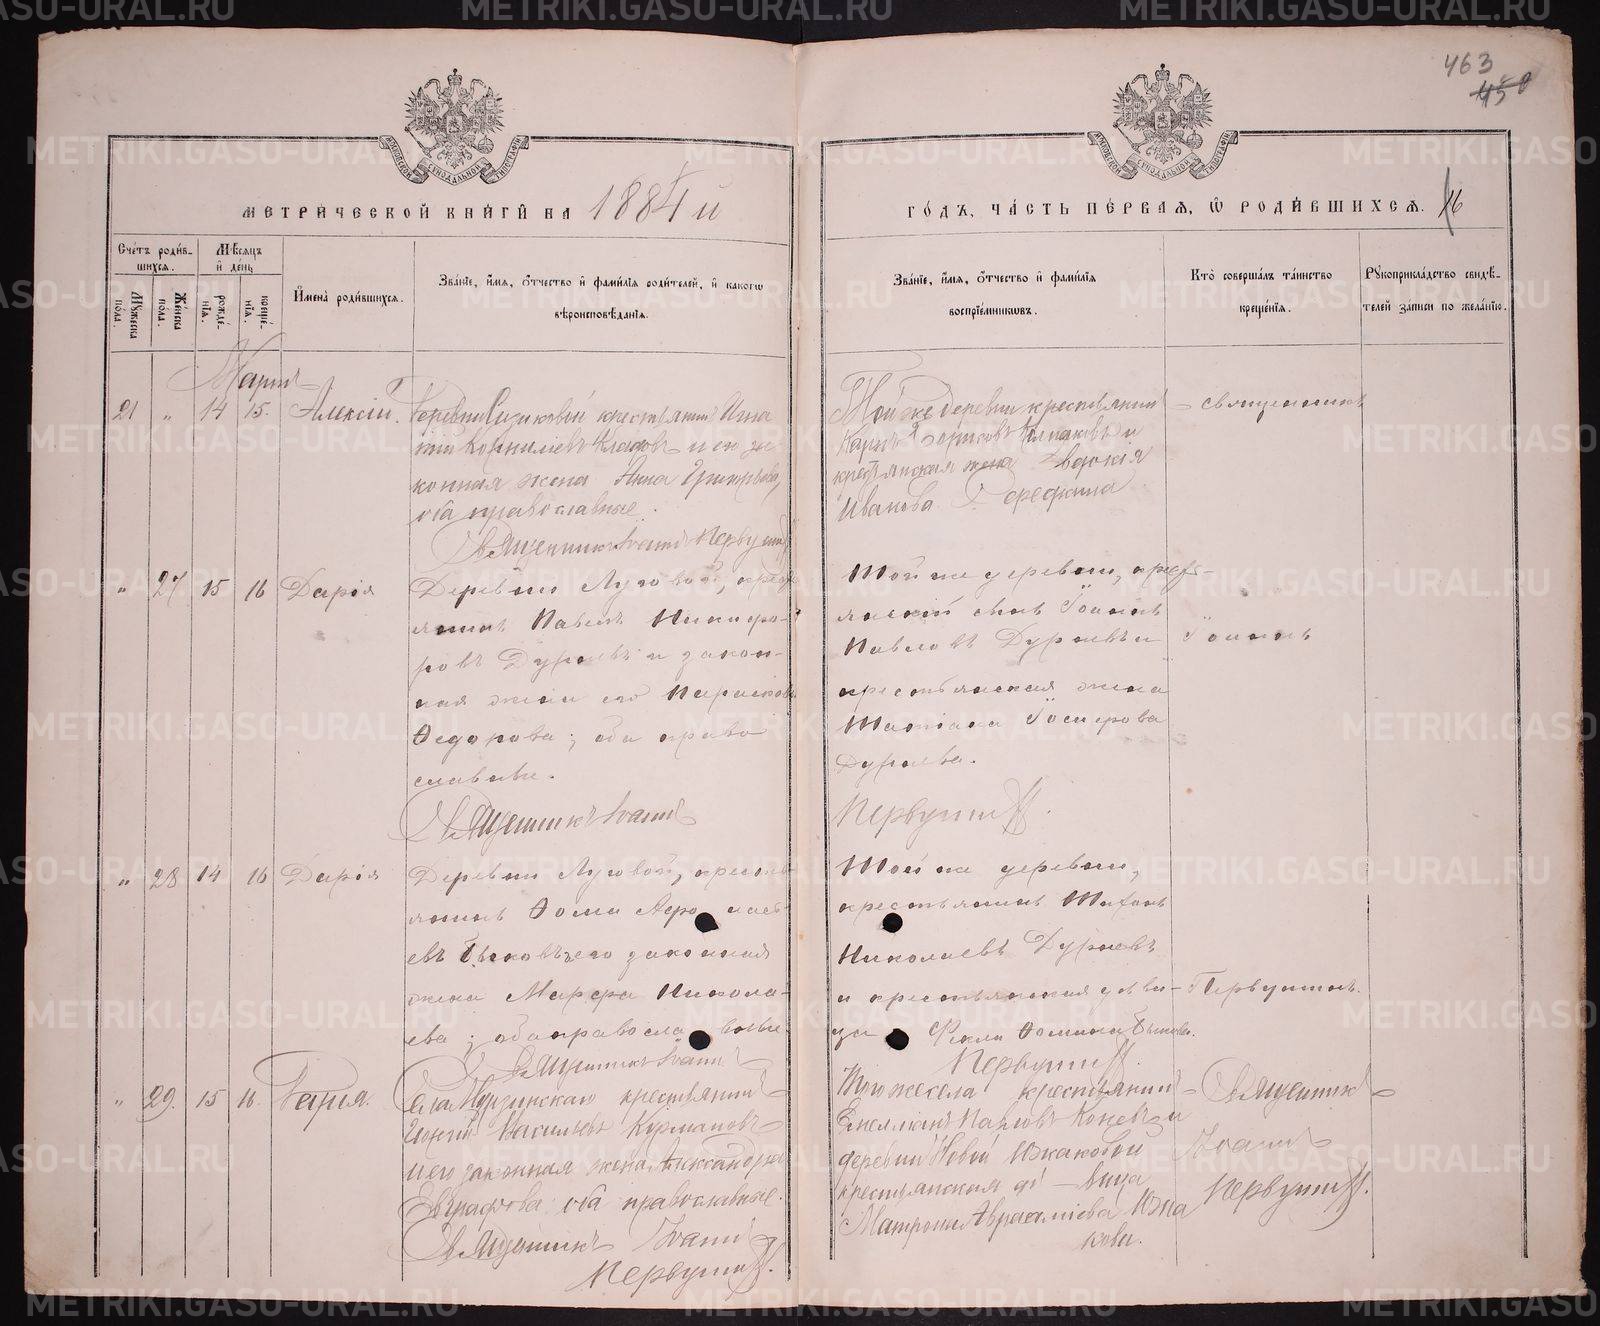 463
450
МОСКОВСКОЙ СѴНОДАЛЬНОЙ ТИПОГРАФІИ
МОСКОВСКОЙ СѴНОДАЛЬНОЙ ТИПОГРАФІИ
МЕТРИЧЕСКОЙ КНИГИ НА 1884 й
ГОДЪ, ЧАСТЬ ПЕРВАЯ, Ѡ РОДИВШИХСЯ. 16
Счетъ родившихся.
Мѣсяцъ и день
Мужеска пола.
Женска пола.
рожденія.
крещенія.
Имена родившихся.
Званіе, имя, отчество и фамилія родителей, и какогѡ вѣроисповѣданія.
Званіе, имя, отчество и фамилія воспріемникѡвъ.
Кто совершалъ таинство крещенія.
Рукоприкладство свидѣтелей записи по желанію.
Марта
21 " 14 15. Алексій.
Деревни крестьянинъ Игна
тій Корниліевъ и его за
конная жена Анна
оба православные.
Священникъ Іоаннъ Первушинъ
Той же деревни крестьянинъ
Карпъ и
крестьянская жена Евдокія
Иванова
священникъ
" 27 15 16 Дарія
Деревни Луговой, кресть
янинъ Павелъ Никифо-
ровъ Дурневъ и закон-
ная жена его Параскова
Ѳедорова; оба право
славные.
Священникъ Іоаннъ
Той же деревни, кресть-
янскій сынъ Іоаннъ
Павловъ Дурневъ и
крестьянская жена
Татіана Іосифова
Дурнева.
Первушинъ.
Іоаннъ
" 28 14 16 Дарія
Деревни Луговой, кресть
янинъ Ѳома Аѳонась
евъ Быковъ, его законная
жена Марѳа Никола-
ева; оба православные
Священникъ Іоаннъ
Той же деревни,
крестьянинъ Тихонъ
Николаевъ Дурневъ
и крестьянская дѣви-
ца Ѳекла Ѳомина Быкова.
Первушинъ.
Первушинъ.
" 29. 15 16. Дарія.
Села Мурзинскаго крестьянинъ
Васильевъ
и его законная жена Александра
Евграфова оба православные.
Священникъ Іоаннъ
Первушинъ.
Того же села крестьянинъ
Павловъ и
деревни Новой Южаковой
крестьянская дѣвица
Матрона Южа
кова.
Священникъ
Іоаннъ
Первушинъ.
METRIKI.GASO-URAL.RU